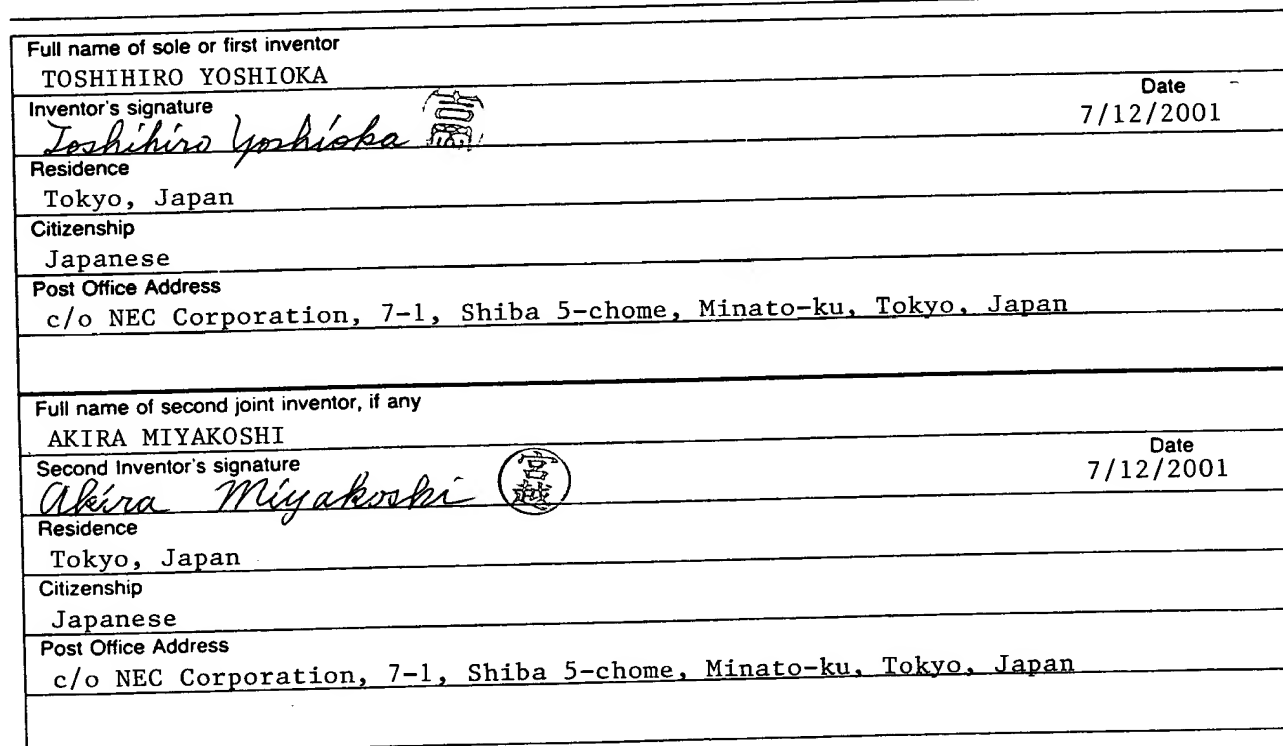 Full name of sole or first inventor
TOSHIHIRO YOSHIOKA
Inventor's signature
Date
Toshihiro Yoshioka 吉岡
7/12/2001
Residence
Tokyo, Japan
Citizenship
Japanese
Post Office Address
c/o NEC Corporation, 7-1, Shiba 5-chome, Minato-ku, Tokyo, Japan
Full name of second joint inventor, if any
AKIRA MIYAKOSHI
Second Inventor's signature
Date
Akira Miyakoshi 宮越
7/12/2001
Residence
Tokyo, Japan
Citizenship
Japanese
Post Office Address
c/o NEC Corporation, 7-1, Shiba 5-chome, Minato-ku, Tokyo, Japan